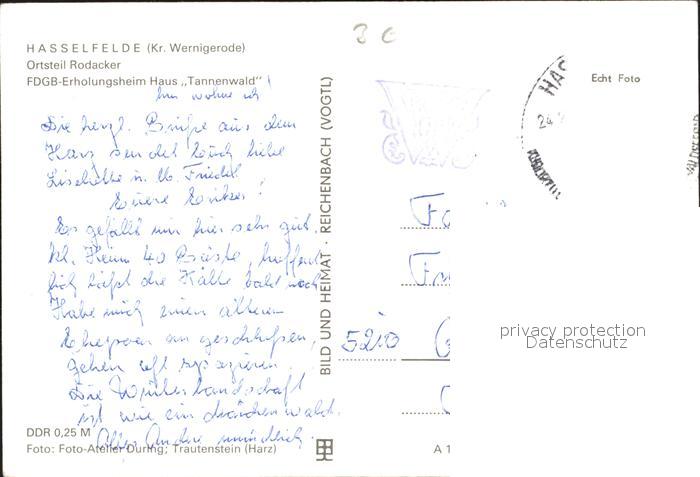 3 C
HASSELFELDE (Kr. Wernigerode)
Ortsteil Rodacker
FDGB-Erholungsheim Haus „Tannenwald"
hier wohne ich
Die herzl. Grüße aus dem
Harz sendet Euch liebe
Liselotte u. lb. Friedel
Euere
Es gefällt mir hier sehr gut.
kl. Heim 40 Gäste, hoffent
lich läßt die Kälte bald nach
Habe mich einem älteren
Ehepaar an geschlossen,
gehen oft spazieren.
Die Winterlandschaft
ist wie ein Märchenwald.
Alles Andre mündlich.
DDR 0,25 M
Foto: Foto-Atelier During; Trautenstein (Harz)
BILD UND HEIMAT · REICHENBACH (VOGTL)
Echt Foto
HAS
24
5210
A 1
privacy protection
Datenschutz